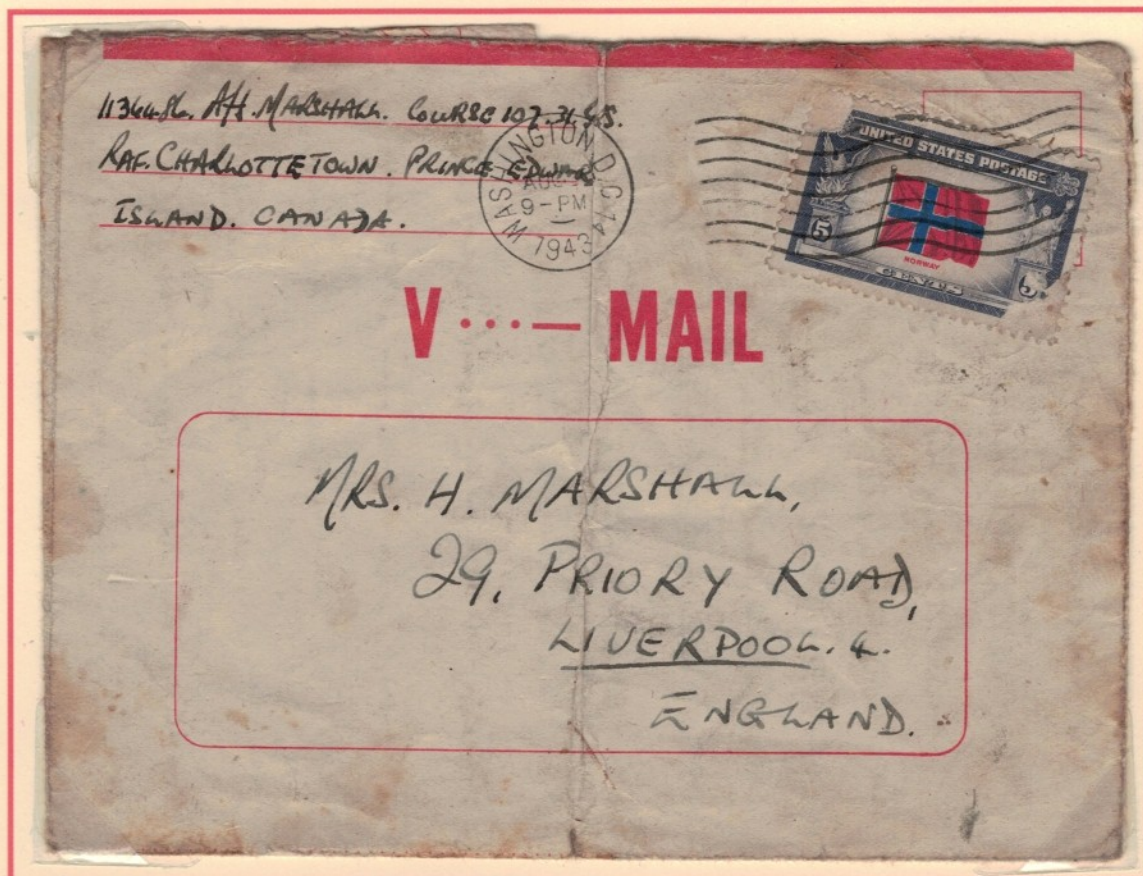 A/H. MARSHALL. COURSE 107. 31. G.S.
RAF. CHARLOTTETOWN. PRINCE EDWARD
ISLAND. CANADA.
WASHINGTON, D.C. 14
AUG
9 - PM
1943
UNITED STATES POSTAGE
5
NORWAY
CENTS
5
V ···— MAIL
MRS. H. MARSHALL,
29, PRIORY ROAD,
LIVERPOOL. 4.
ENGLAND.